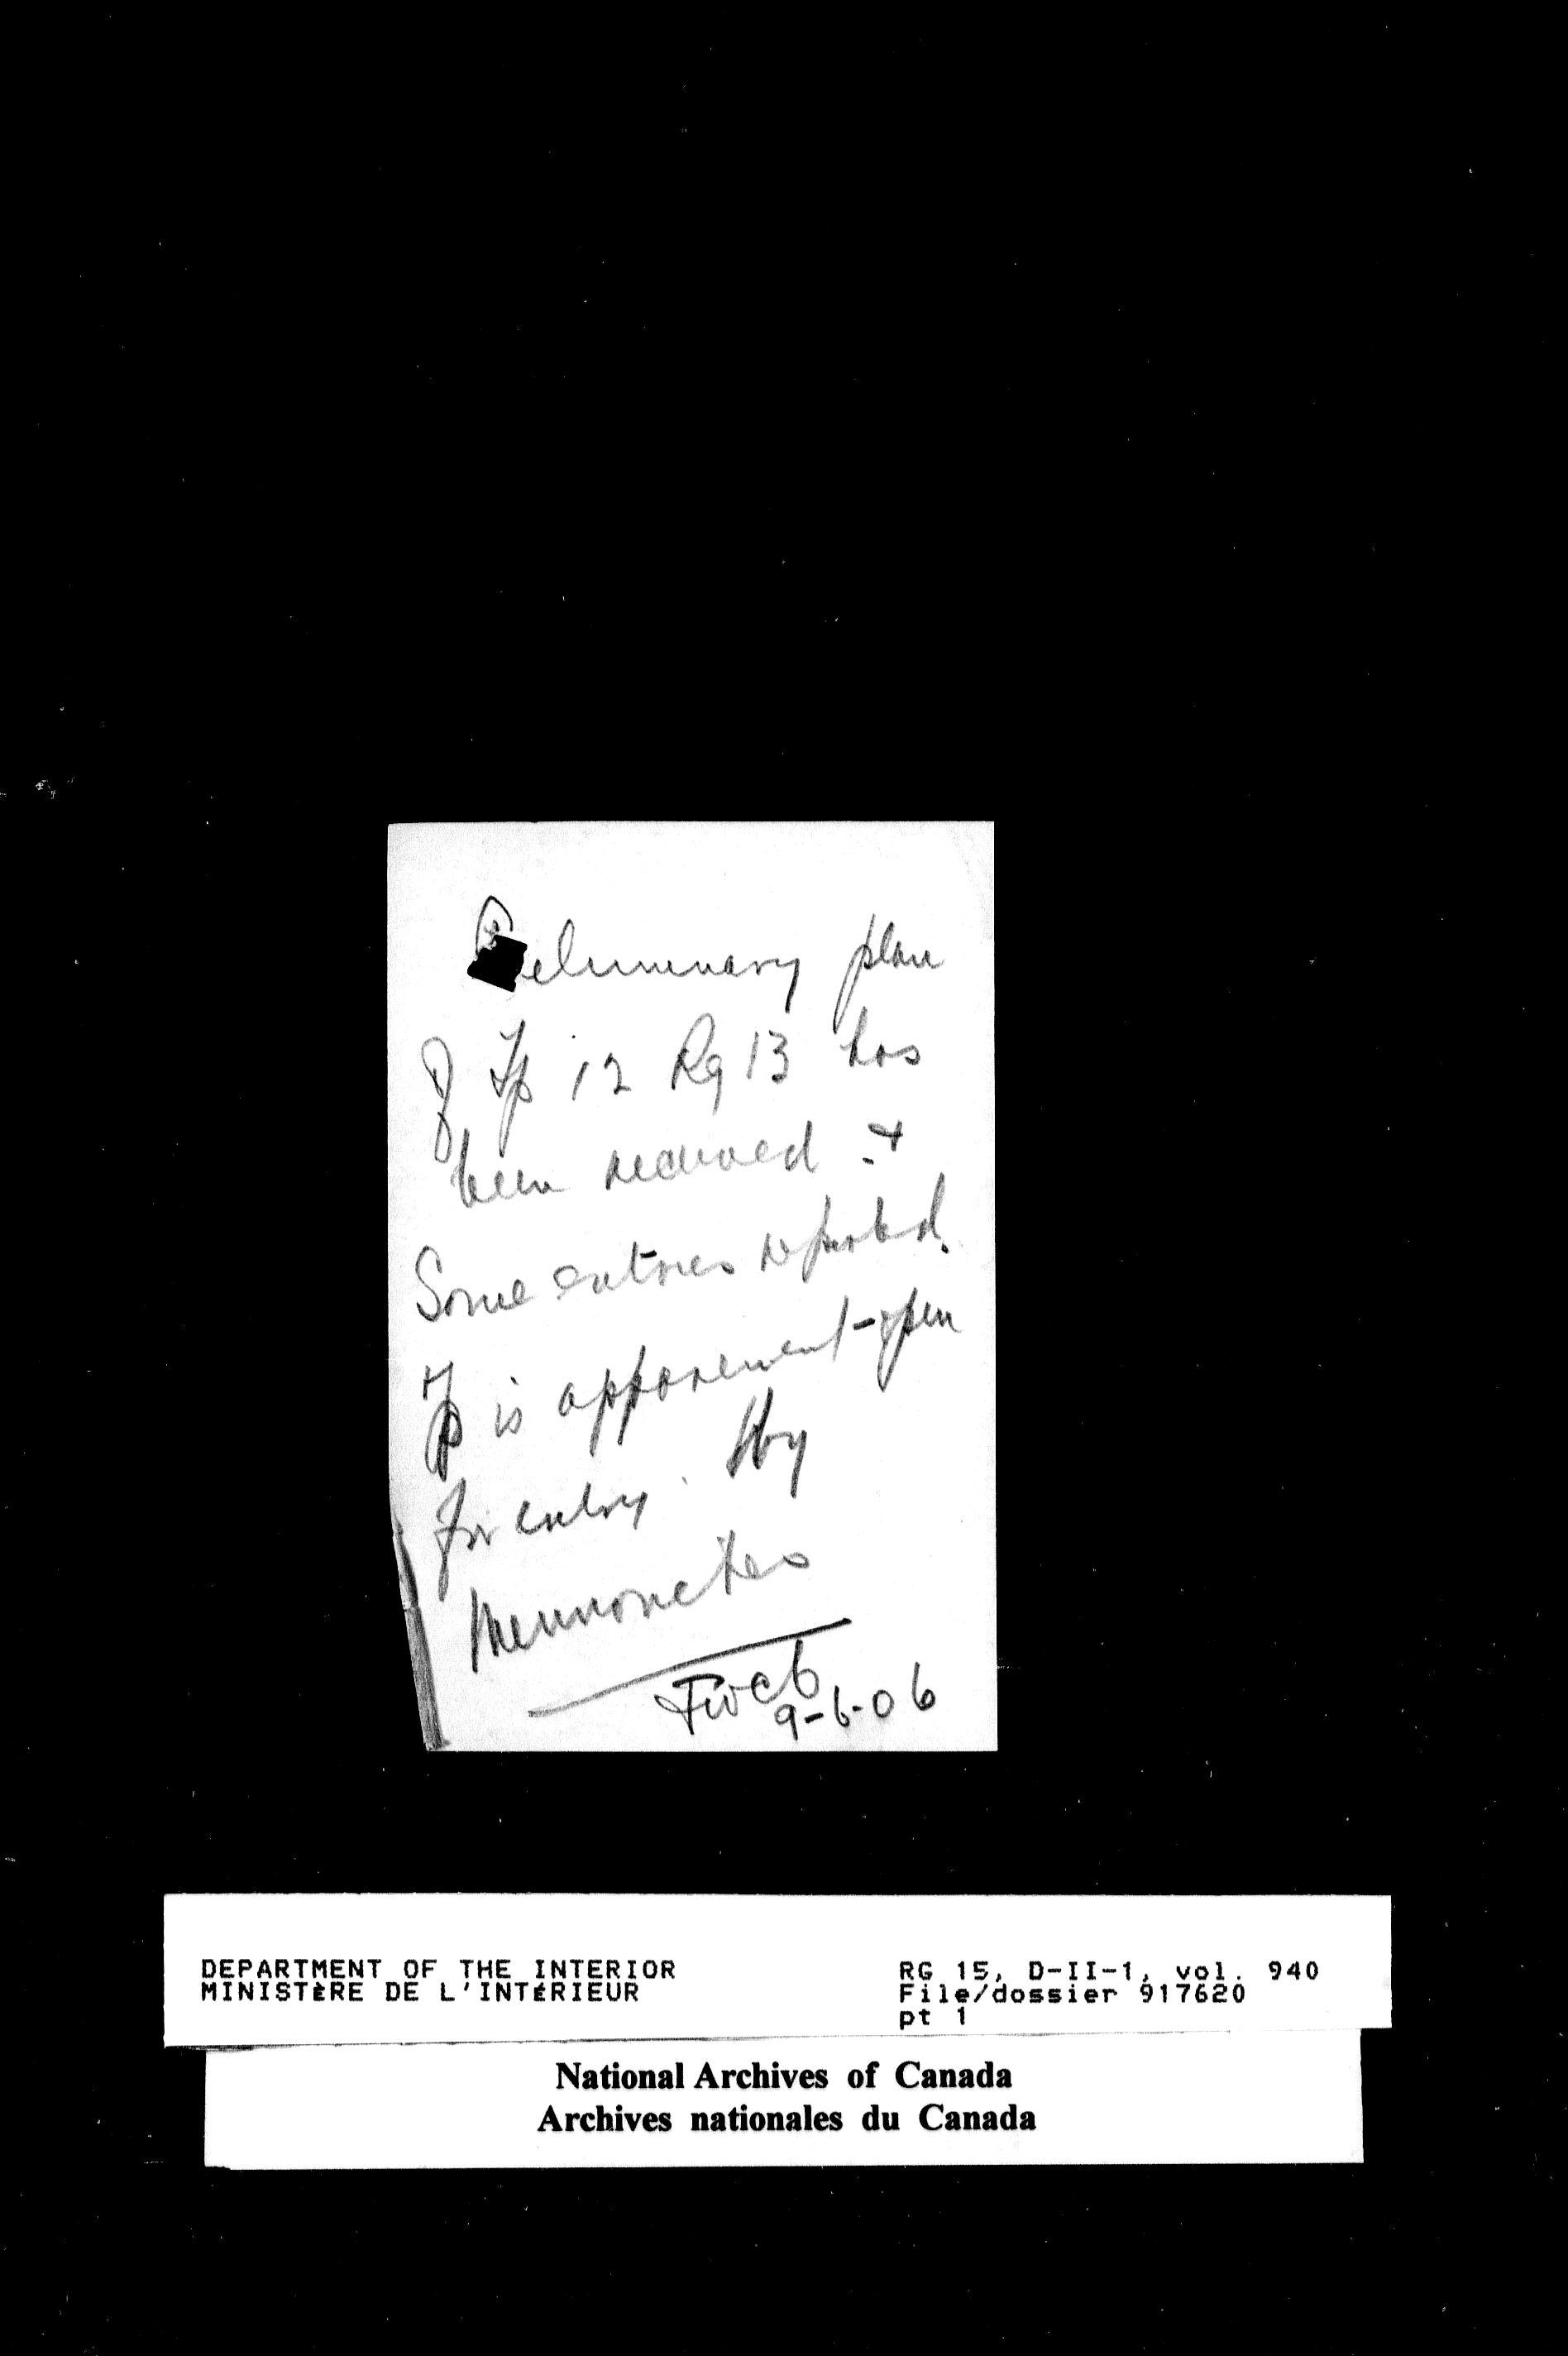 Preliminary plan
of Tp 12 Rg 13 has
been received &
Some entries reported.
Tp is apparement open
for entry by
Mennonites
FWCB
9-6-06
DEPARTMENT OF THE INTERIOR
MINISTÈRE DE L'INTÉRIEUR
RG 15, D-II-1, vol. 940
File/dossier 917620
pt 1
National Archives of Canada
Archives nationales du Canada